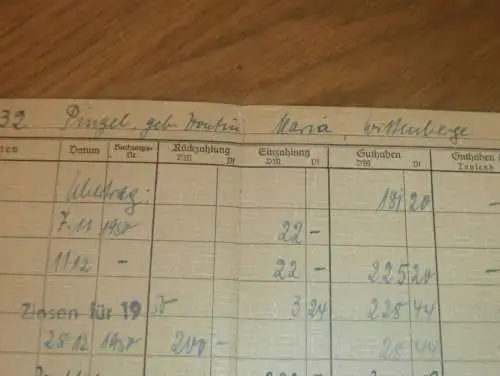 32 Pingel, geb. Maria, Wittenberge
ten Datum Buchungs-Nr. Rückzahlung DM Pf Einzahlung DM Pf Guthaben DM Pf Guthaben Tausend
Übertrag: 181 20
7.11 1950 22 -
11.12 - 22 - 225 20
Zinsen für 19 50 3 24 228 44
28 12 1950 200 - 28 44